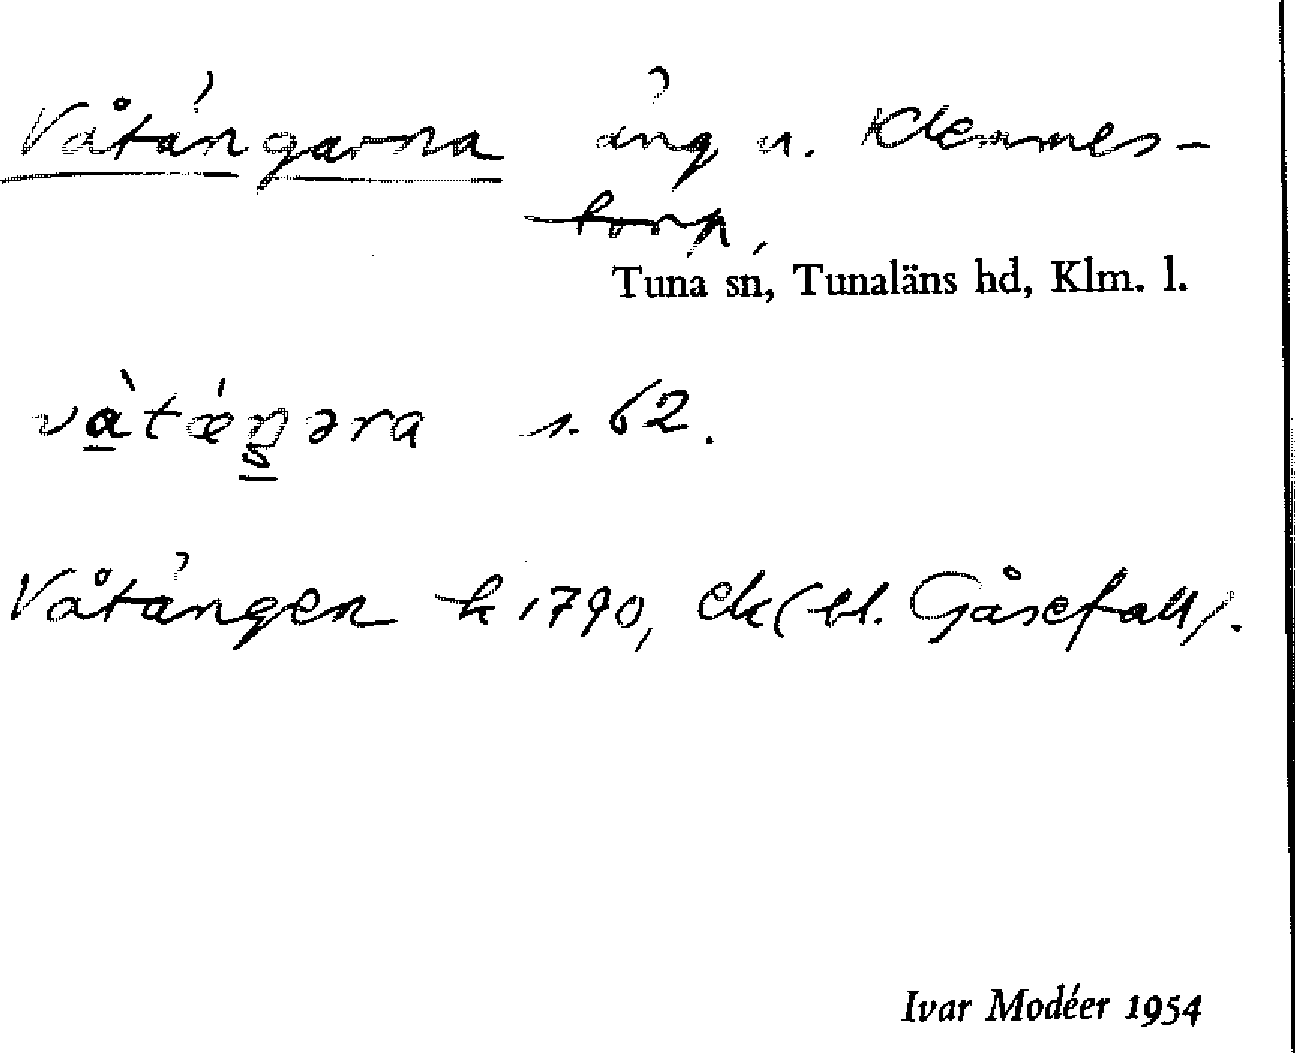 Våtängarna äng u. Klemmes-
torp,
Tuna sn, Tunaläns hd, Klm. l.
və̀tǽŋəra s. 62.
Våtängen k 1790, ek (bl. Gåsefall).
Ivar Modéer 1954